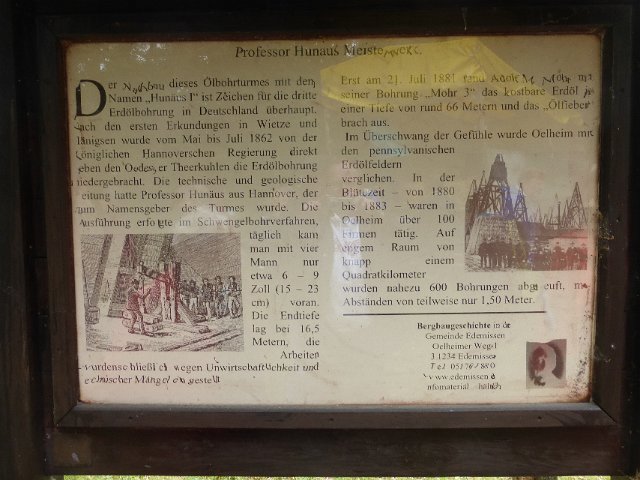 Professor Hunaus Meisterwerk
Der Nachbau dieses Ölbohrturmes mit dem
Namen „Hunaus I“ ist Zeichen für die dritte
Erdölbohrung in Deutschland überhaupt.
Nach den ersten Erkundungen in Wietze und
Hänigsen wurde vom Mai bis Juli 1862 von der
Königlichen Hannoverschen Regierung direkt
neben den Oedesser Theerkuhlen die Erdölbohrung
niedergebracht. Die technische und geologische
Leitung hatte Professor Hunäus aus Hannover, der
zum Namensgeber des Turmes wurde. Die
Ausführung erfolgte im Schwengelbohrverfahren,
täglich kam
man mit vier
Mann nur
etwa 6 – 9
Zoll (15 – 23
cm) voran.
Die Endtiefe
lag bei 16,5
Metern, die
Arbeiten
wurden schließlich wegen Unwirtschaftlichkeit und
technischer Mängel eingestellt
Erst am 21. Juli 1881 fand Adolf M. Mohr mit
seiner Bohrung „Mohr 3“ das kostbare Erdöl in
einer Tiefe von rund 66 Metern und das „Ölfieber“
brach aus.
Im Überschwang der Gefühle wurde Oelheim mit
den pennsylvanischen
Erdölfeldern
verglichen. In der
Blütezeit – von 1880
bis 1883 – waren in
Oelheim über 100
Firmen tätig. Auf
engem Raum von
knapp einem
Quadratkilometer
wurden nahezu 600 Bohrungen abgeteuft, mit
Abständen von teilweise nur 1,50 Meter.
Bergbaugeschichte in der
Gemeinde Edemissen
Oelheimer Weg 1
31234 Edemissen
Tel. 05176/
www.edemissen.de
Infomaterial erhältlich